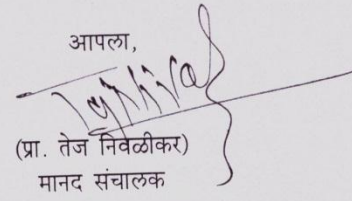 आपला,
(प्रा. तेज निवळीकर)
मानद संचालक